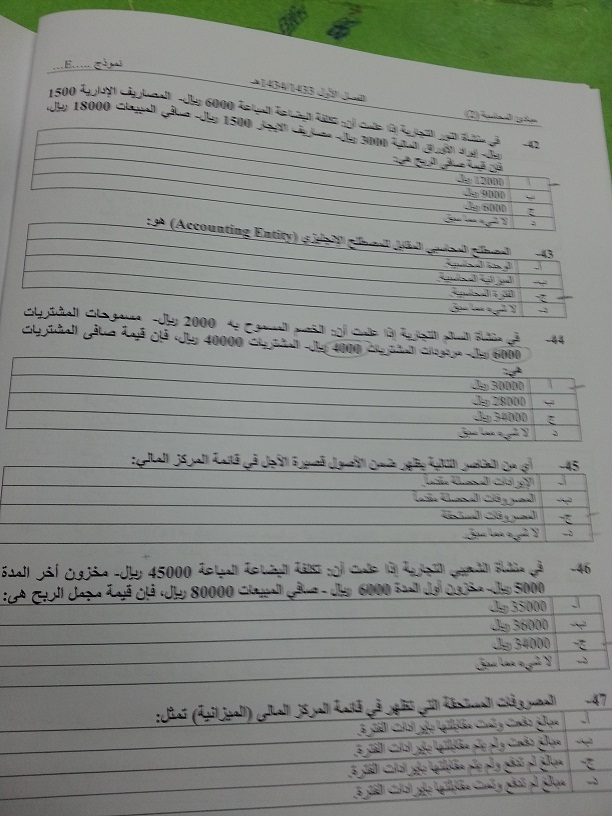 مبادئ المحاسبة (2)
الفصل الأول 1434/1433هـ
نموذج ....E...
42- في منشأة النور التجارية إذا علمت أن: تكلفة البضاعة المباعة 6000 ريال- المصاريف الإدارية 1500
ريال- إيراد الأوراق المالية 3000 ريال- مصاريف الايجار 1500 ريال- صافي المبيعات 18000 ريال،
فإن قيمة صافي الربح هي:
أ 12000 ريال
ب 9000 ريال
ج 6000 ريال
د لا شيء مما سبق
43- المصطلح المحاسبي المقابل للمصطلح الإنجليزي (Accounting Entity) هو:
أ- الوحدة المحاسبية.
ب- الميزانية المحاسبية.
ج- الفترة المحاسبية.
د- لا شيء مما سبق
44- في منشأة السالم التجارية إذا علمت أن: الخصم المسموح به 2000 ريال- مسموحات المشتريات
6000 ريال- مردودات المشتريات 4000 ريال- المشتريات 40000 ريال، فإن قيمة صافى المشتريات
هي:
أ 30000 ريال
ب 28000 ريال
ج 34000 ريال
د لا شيء مما سبق
45- أي من العناصر التالية يظهر ضمن الأصول قصيرة الأجل في قائمة المركز المالي:
أ- الإيرادات المحصلة مقدماً.
ب- المصروفات المحصلة مقدماً
ج- المصروفات المستحقة
د- لا شيء مما سبق.
46- في منشأة الشعيبي التجارية إذا علمت أن: تكلفة البضاعة المباعة 45000 ريال- مخزون أخر المدة
5000 ريال- مخزون أول المدة 6000 ريال - صافي المبيعات 80000 ريال، فإن قيمة مجمل الربح هي:
أ- 35000 ريال
ب- 36000 ريال
ج- 34000 ريال
د- لا شيء مما سبق
47- المصروفات المستحقة التي تظهر في قائمة المركز المالي (الميزانية) تمثل:
أ- مبالغ دفعت وتمت مقابلتها بإيرادات الفترة.
ب- مبالغ دفعت ولم يتم مقابلتها بإيرادات الفترة.
ج- مبالغ لم تدفع ولم يتم مقابلتها بإيرادات الفترة.
د- مبالغ لم تدفع وتمت مقابلتها بإيرادات الفترة.